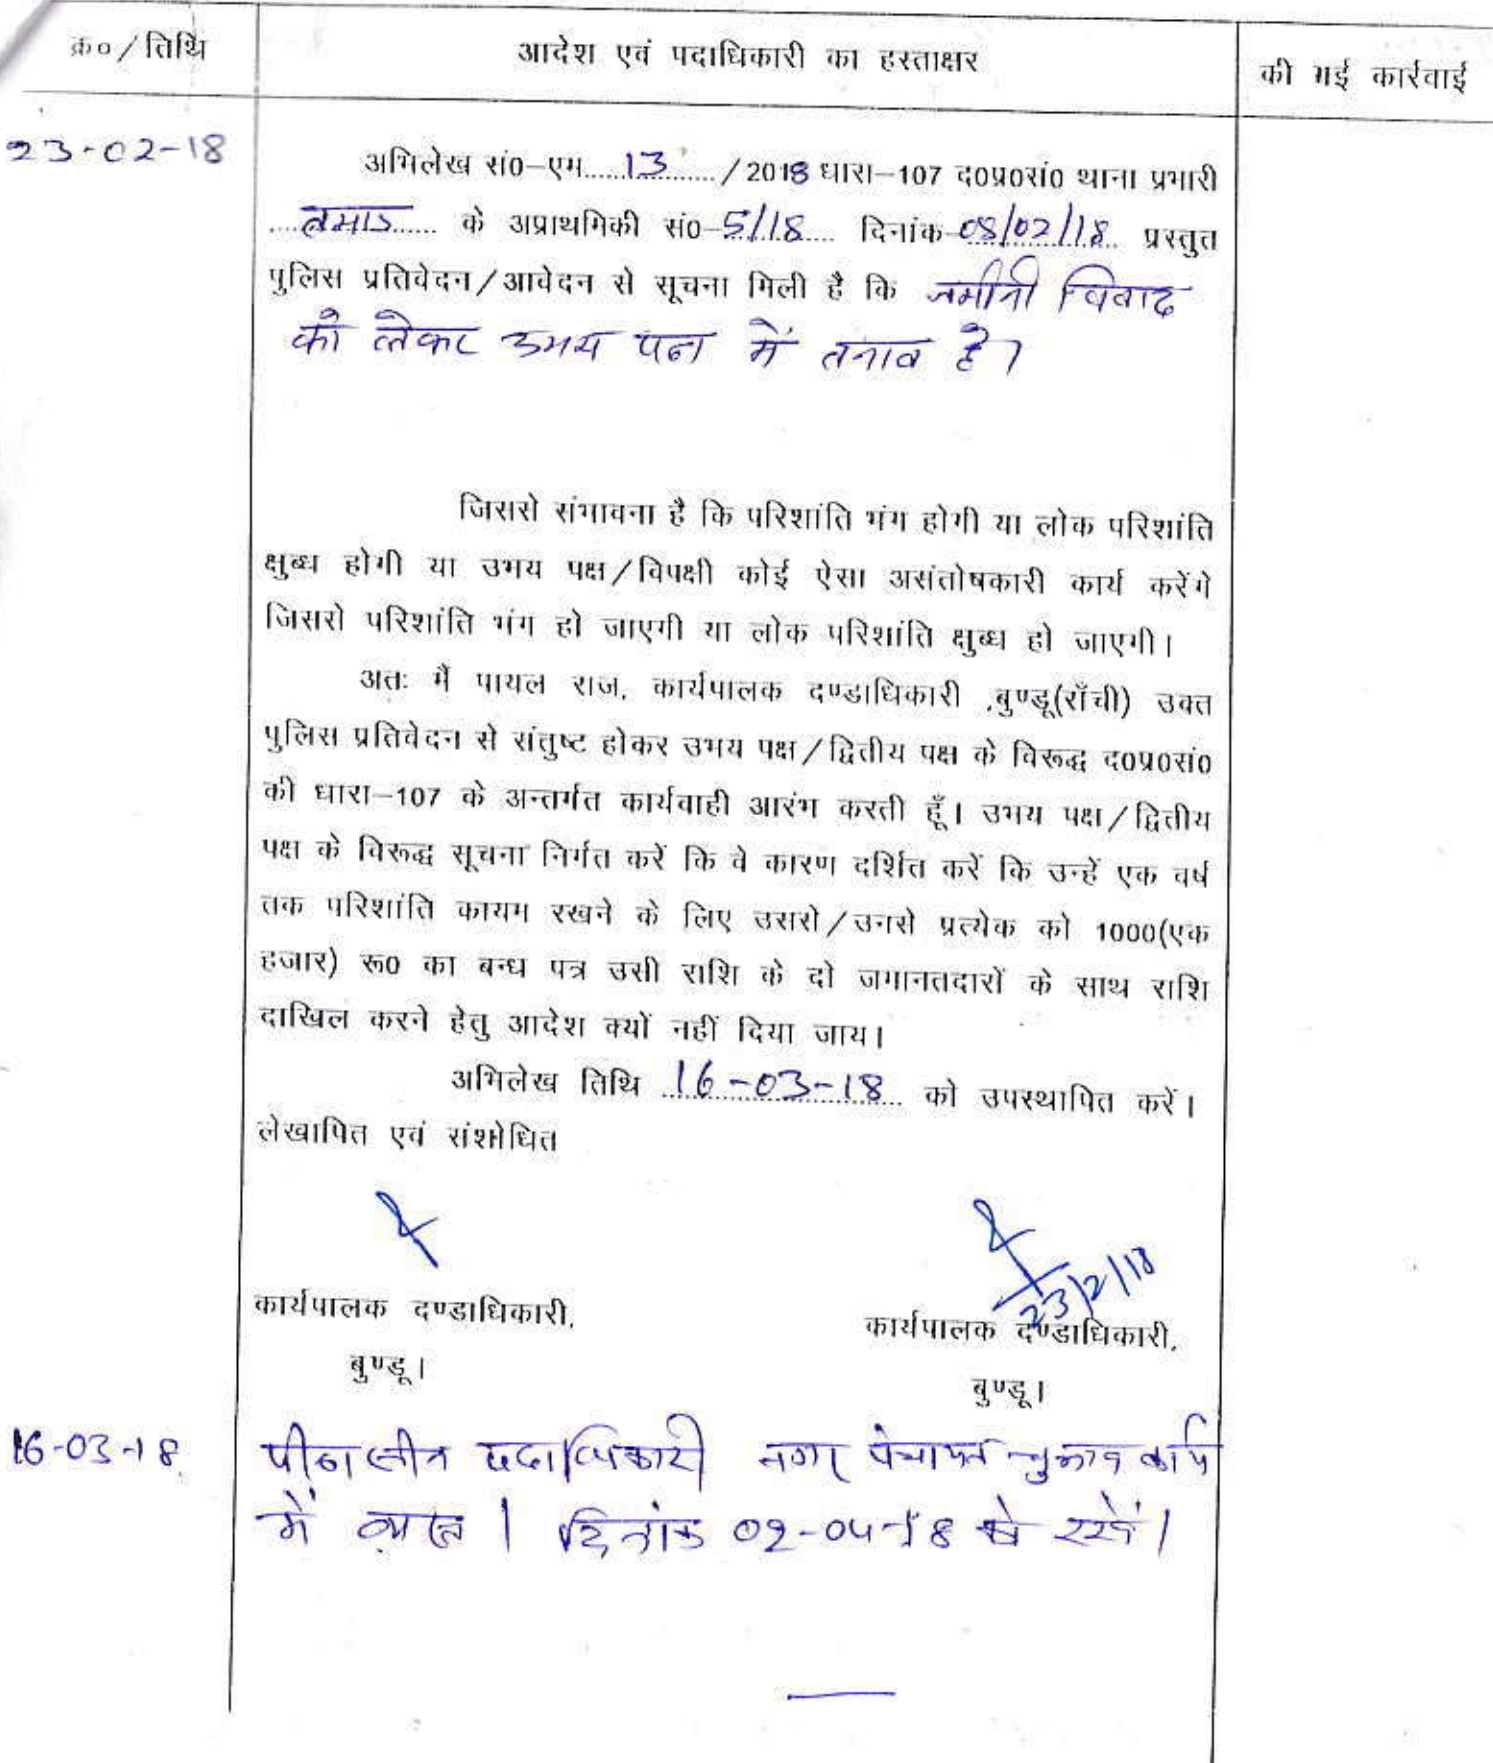 क्र०/तिथि
आदेश एवं पदाधिकारी का हस्ताक्षर
की गई कार्रवाई
23-02-18
अभिलेख सं०-एम.....13...../2018 धारा-107 द०प्र०सं० थाना प्रभारी
....तमाड़..... के अप्राथमिकी सं०-5/18.... दिनांक-08/02/18. प्रस्तुत
पुलिस प्रतिवेदन/आवेदन से सूचना मिली है कि जमीनी विवाद
को लेकर उभय पक्ष में तनाव है।
जिससे संभावना है कि परिशांति भंग होगी या लोक परिशांति
क्षुब्ध होगी या उभय पक्ष/विपक्षी कोई ऐसा असंतोषकारी कार्य करेंगे
जिससे परिशांति भंग हो जाएगी या लोक परिशांति क्षुब्ध हो जाएगी।
अतः मैं पायल राज, कार्यपालक दण्डाधिकारी ,बुण्डू(राँची) उक्त
पुलिस प्रतिवेदन से संतुष्ट होकर उभय पक्ष/द्वितीय पक्ष के विरूद्ध द०प्र०सं०
की धारा-107 के अन्तर्गत कार्यवाही आरंभ करती हूँ। उभय पक्ष/द्वितीय
पक्ष के विरूद्ध सूचना निर्गत करें कि वे कारण दर्शित करें कि उन्हें एक वर्ष
तक परिशांति कायम रखने के लिए उससे/उनसे प्रत्येक को 1000(एक
हजार) रू० का बन्ध पत्र उसी राशि के दो जमानतदारों के साथ राशि
दाखिल करने हेतु आदेश क्यों नहीं दिया जाय।
अभिलेख तिथि 16-03-18 को उपस्थापित करें।
लेखापित एवं संशोधित
23/2/18
कार्यपालक दण्डाधिकारी,
कार्यपालक दण्डाधिकारी,
बुण्डू।
बुण्डू।
16-03-18 पीठासीन पदाधिकारी नगर पंचायत चुनाव कार्य
में व्यस्त। दिनांक 02-04-18 को रखें।